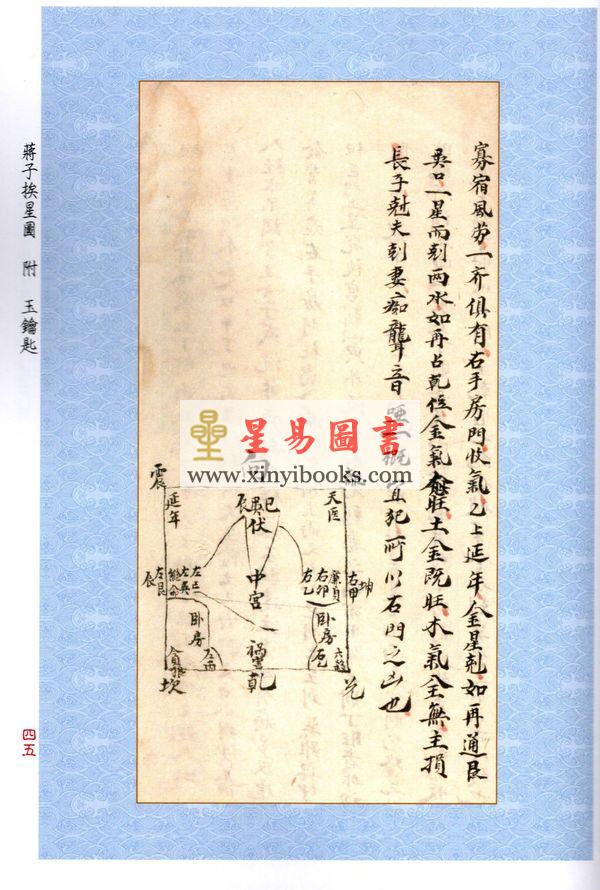 寡宿風勞一齐俱有右手房門收氣乙上延年金星剋如再通艮
一星而剋兩水如再占乾位金氣愈旺土金既旺木氣全無主損
長子剋夫剋妻痴聾音啞一概宜犯所以右門之凶也
星易圖書
www.xinyibooks.com
向
震
延年
辰巽巳
伏
天医
中宮
辰
左艮
左巽
左巳
右乙
右卯
廉貞
右甲
坤
卧房
卧房
禍
六煞
坎
乾
兑
蔣子挨星圖 附 玉鑰匙
四五